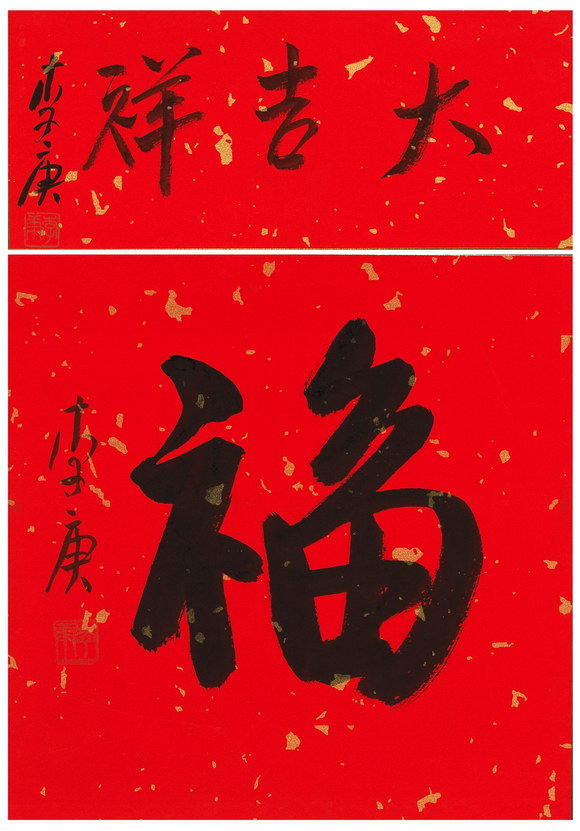 大吉祥
李庚
福
李庚